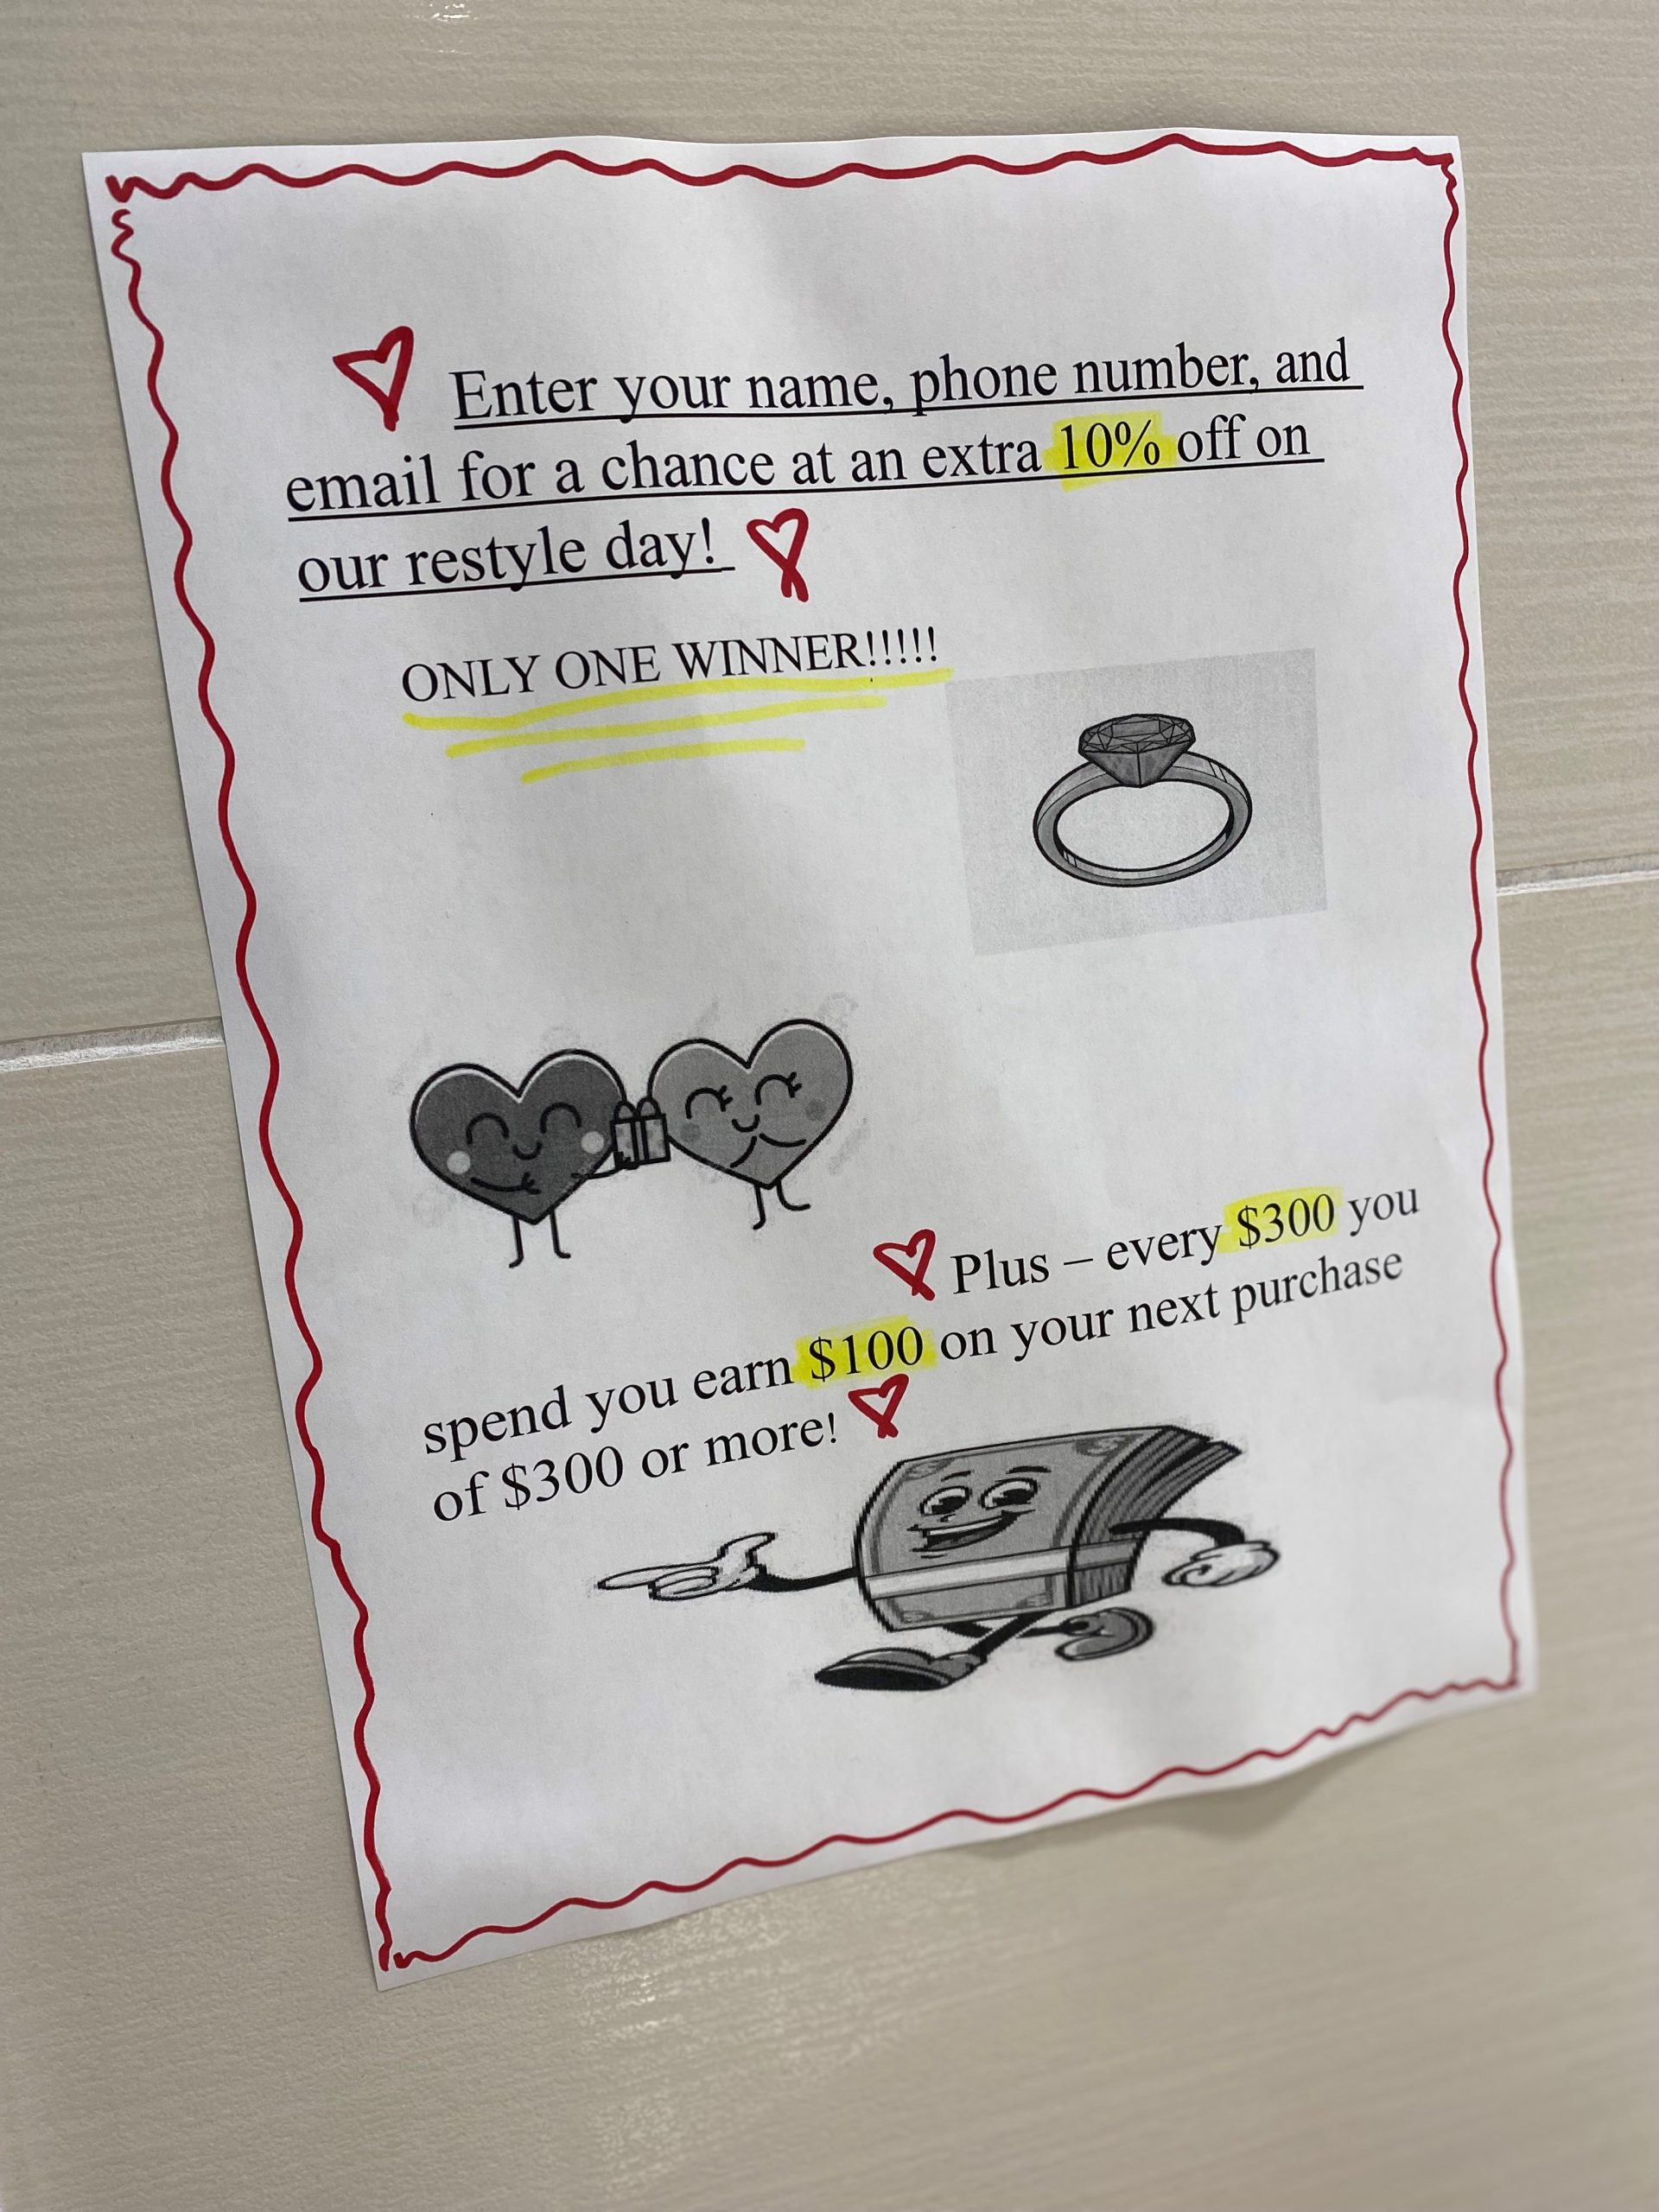 Enter your name, phone number, and
email for a chance at an extra 10% off on
our restyle day!
ONLY ONE WINNER!!!!!
Plus – every $300 you
spend you earn $100 on your next purchase
of $300 or more!